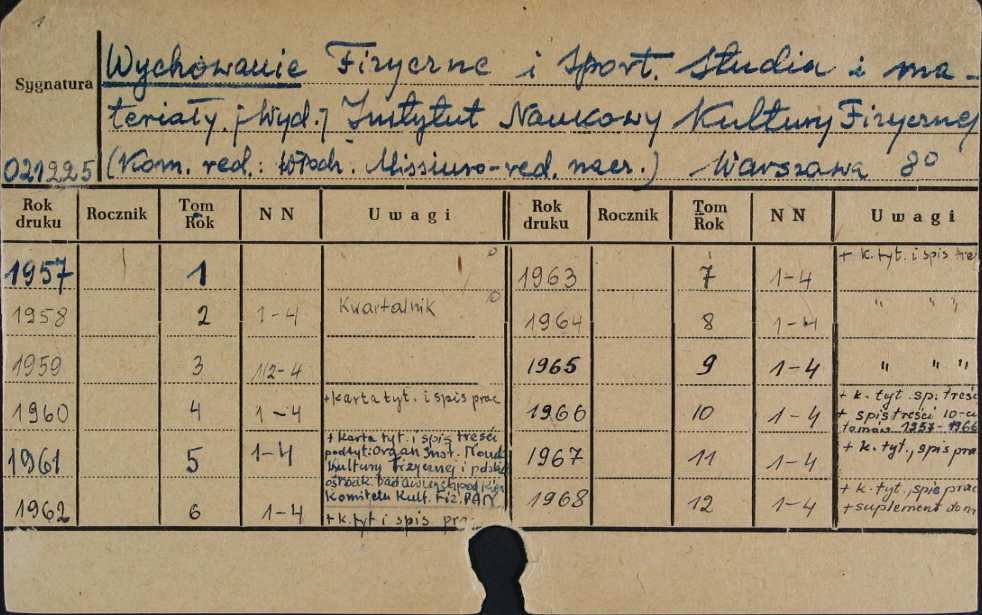 1
Sygnatura
Wychowanie Fizyczne i Sport. Studia i ma-
teriały. [Wyd.] Instytut Naukowy Kultury Fizycznej
021225 (Kom. red.: Włodz. Missiuro-red. nacz.) Warszawa 8º
Rok druku Rocznik Tom Rok NN Uwagi Rok druku Rocznik Tom Rok NN Uwagi
1957 1
1958 2 1-4 Kwartalnik
1959 3 1/2-4
1960 4 1-4 + karta tyt. i spis prac
1961 5 1-4 + karta tyt. i spis treści
podtyt: Organ Inst. Nauk
Kultury Fizycznej i
Komitetu Kult. Fiz. PAN
1962 6 1-4 + k. tyt i spis
1963 7 1-4 + k. tyt. i spis
1964 8 1-4 " " "
1965 9 1-4 " " "
1966 10 1-4 + k. tyt. sp. treśc
+ spis treści 10-ciu
tomów 1957-1966
1967 11 1-4 + k. tyt., spis pra
1968 12 1-4 + k. tyt., spis prac
+ suplement